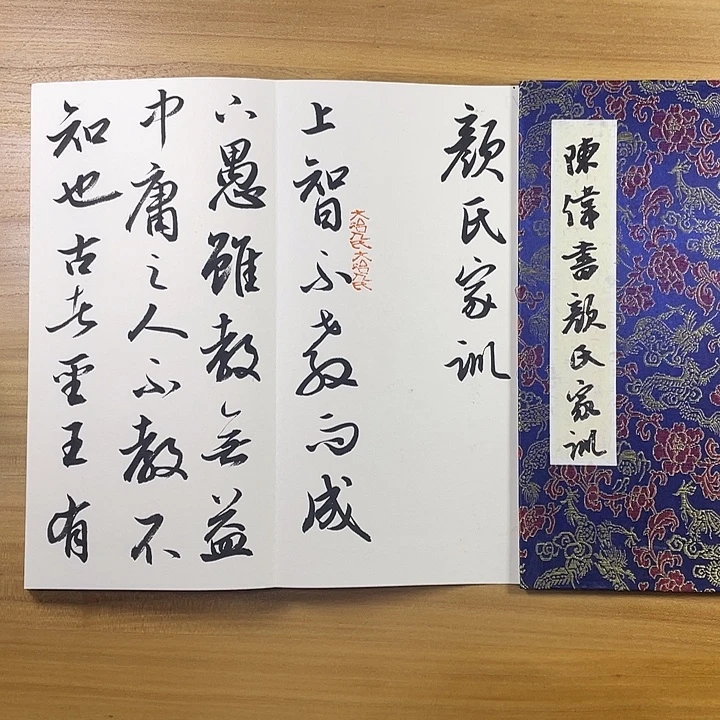 陳偉書顔氏家訓
顔氏家訓
上智不教而成
下愚雖教無益
中庸之人不教不
知也古者聖王有